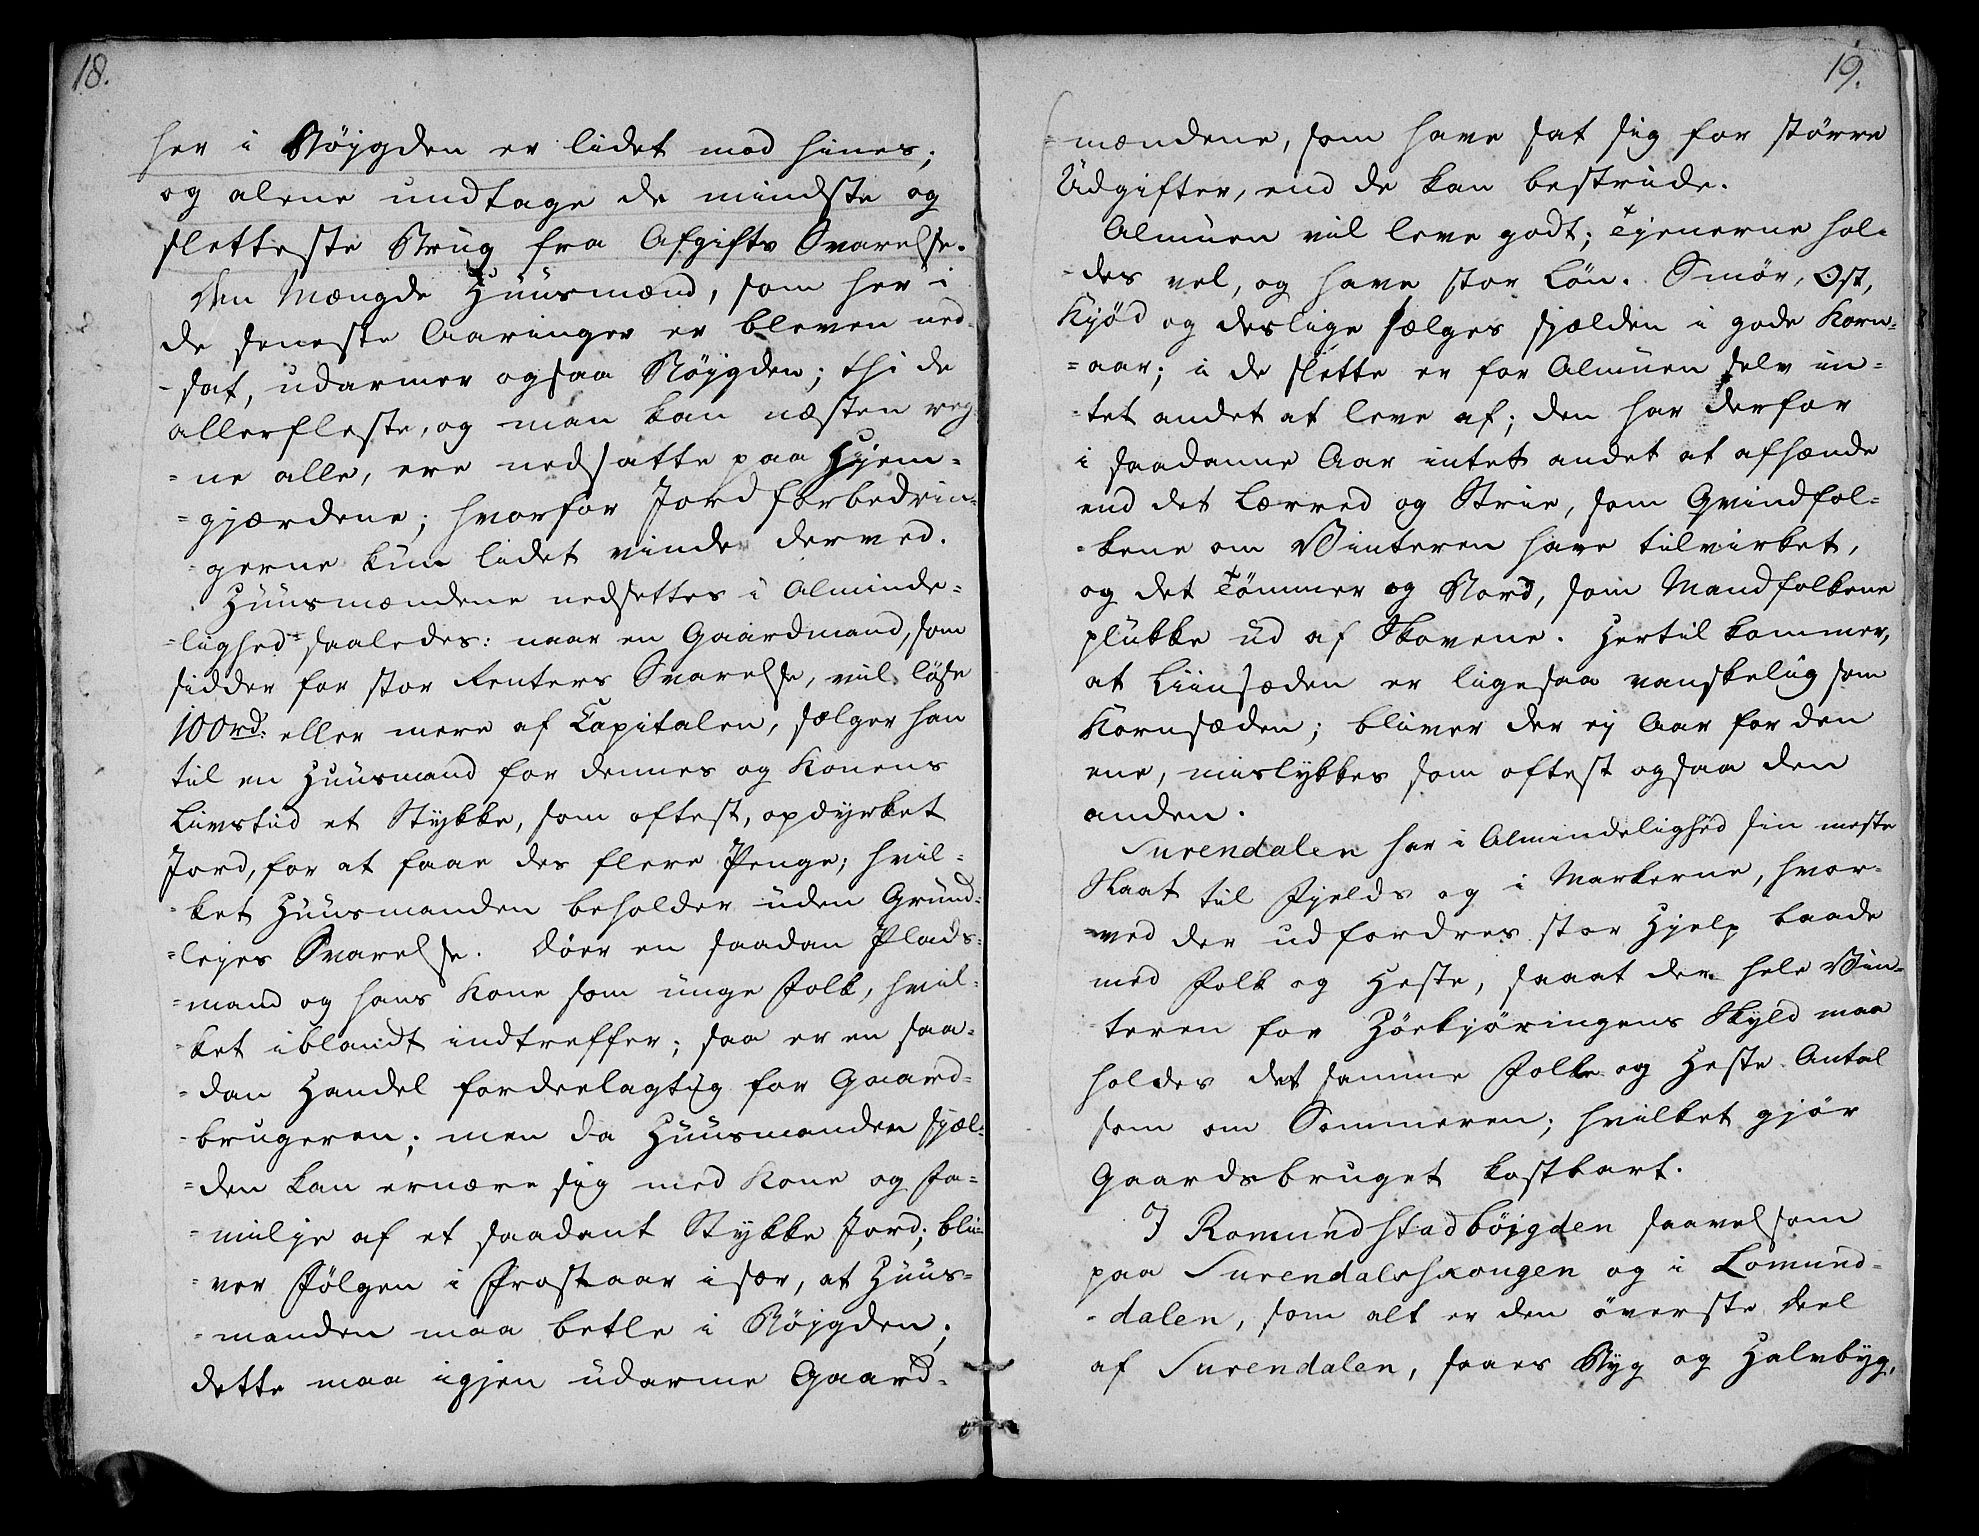 18.
her i Böjgden er lidet mod hines;
og alene undtage de mindste og
sletteste Brug fra Afgifts Svarelse.
Den Mængde Huusmænd, som her i
de seneste Aaringer er bleven ned-
-sat, udarmer ogsaa Böjgden; thi de
allerfleste, og man kan næsten reg-
-ne alle, ere nedsatte paa Hjem-
-gjærdene; hvorfor Jordforbedrin-
-gerne kun lidet vinde derved.
Huusmændene nedsettes i Alminde-
-lighed saaledes: naar en Gaardmand, som
sidder for stor Renters Svarelse, vil löse
100rd: eller mere af Capitalen, sælger han
til en Huusmand for dennes og Konens
Livstid et Stykke, som oftest, opdyrket
Jord, for at faae des flere Penge; hvil-
-ket Huusmanden beholder uden Grund-
-lejes Svarelse. Döer en saadan Plads-
-mand og hans Kone som unge Folk, hvil-
-ket iblandt indtreffer; saa er en saa-
-dan Handel fordeelagtig for Gaard-
-brugeren; men da Huusmanden sjæl-
-den kan ernære sig med Kone og Fa-
-milje af et saadant Stykke Jord; bli-
-ver Fölgen i Frostaar især, at Huus-
-manden maa betle i Böjgden;
dette maa igjen udarme Gaard-
19.
-mændene, som have sat sig for större
Udgifter, end de kan bestride.
Almuen vil leve godt; Tjenerne hol-
-des vel, og have stor Lön. Smör, Ost,
Kjød og deslige sælges sjælden i gode Korn-
-aar; i de slette er for Almuen selv in-
-tet andet at leve af; den har derfor
i saadanne Aar intet andet at afhænde
end det Lærred og Strie, som Qvindfol-
-kene om Vinteren have tilvirket,
og det Tömmer og Bord, som Mandfolkene
plukke ud af Skovene. Hertil kommer,
at Liinsæden er ligesaa vanskelig som
Kornsæden; bliver der ej Aar for den
ene, mislykkes som oftest ogsaa den
anden.
Surendalen har i Almindelighed sin meste
Slaat til Fjelds og i Markerne, hvor-
-ved der udfordres stor Hjelp baade
med Folk og Heste, saaat der hele Vin-
-teren for Höekjöringens Skyld maa
holdes det samme Folke og Heste Antal
som om Sommeren; hvilket gjör
Gaardsbruget kostbart.
I Romundstadböjgden saavelsom
paa Surendalsskougen og i Lomund-
-dalen, som alt er den överste Deel
af Surendalen, saaes Byg og Halvbyg,